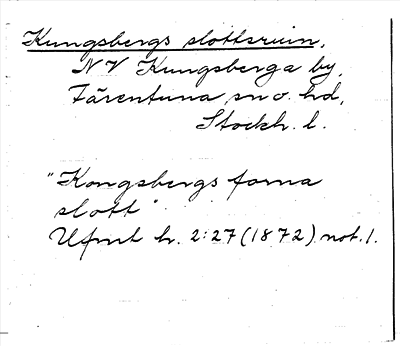 Kungsbergs slottsruin,
NV Kungsberga by,
Färentuna sn o. hd,
Stockh. l.
"Kongsbergs forna
slott"
Ufmt h. 2:27 (1872) not. 1.